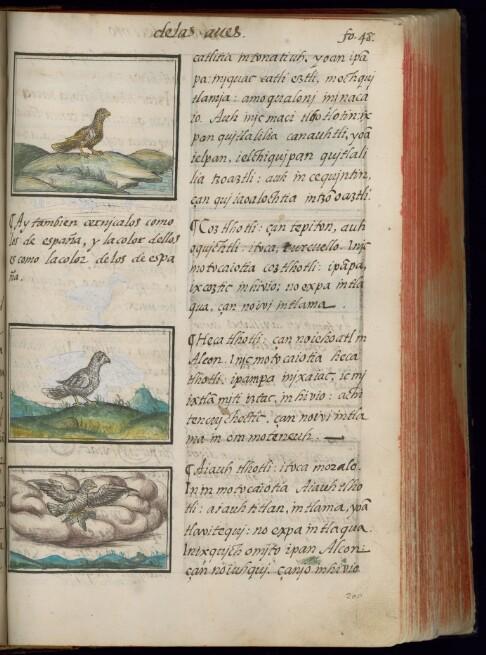 de las aues.
fo. 48.
¶ Ay tambien cernicalos como
los de españa, y la color dellos
es como la color de los de espa
ña.
catlitia in tonatiuh, yoan ipā
pa: in iquac eatli eztli, mochqui
tlamia: amo qualoni in inaca
io. Auh injc maci tlotlotin: ix
pan quitlalilia canauhtli, yoā
ielpan, ielchiquipan quitlali
lia tzoaztli: auh in cequintin,
çan quitlaoalochtia in tzooaztli.
¶ Coztlhotli: çan tepiton, auh
oquichtli: itoca, turcuello. Injc
motocaiotia coztlhotli: ipāpa,
ixcoztic in hivio: no expa in tla
qua, çan no ivi in tlama.
¶ Hecatlhotli: çan no iehoatl in
Alcon. Injc motocaiotia heca
tlhotli: ipampa in ixaiac, ic mi
ixtla iztac, in hivio: achi
çan no ivi in tla
ma in om moteneuh.
¶ Aiauhtlhotli: itoca
In in motocaiotia Aiauhtlho
tli: aiauhtitlan, in tlama, yoā
tlavitequi: no expa in tlaqua.
Inixquich omito ipan Alcon
çan no iuhqui. çanio in hivio
200